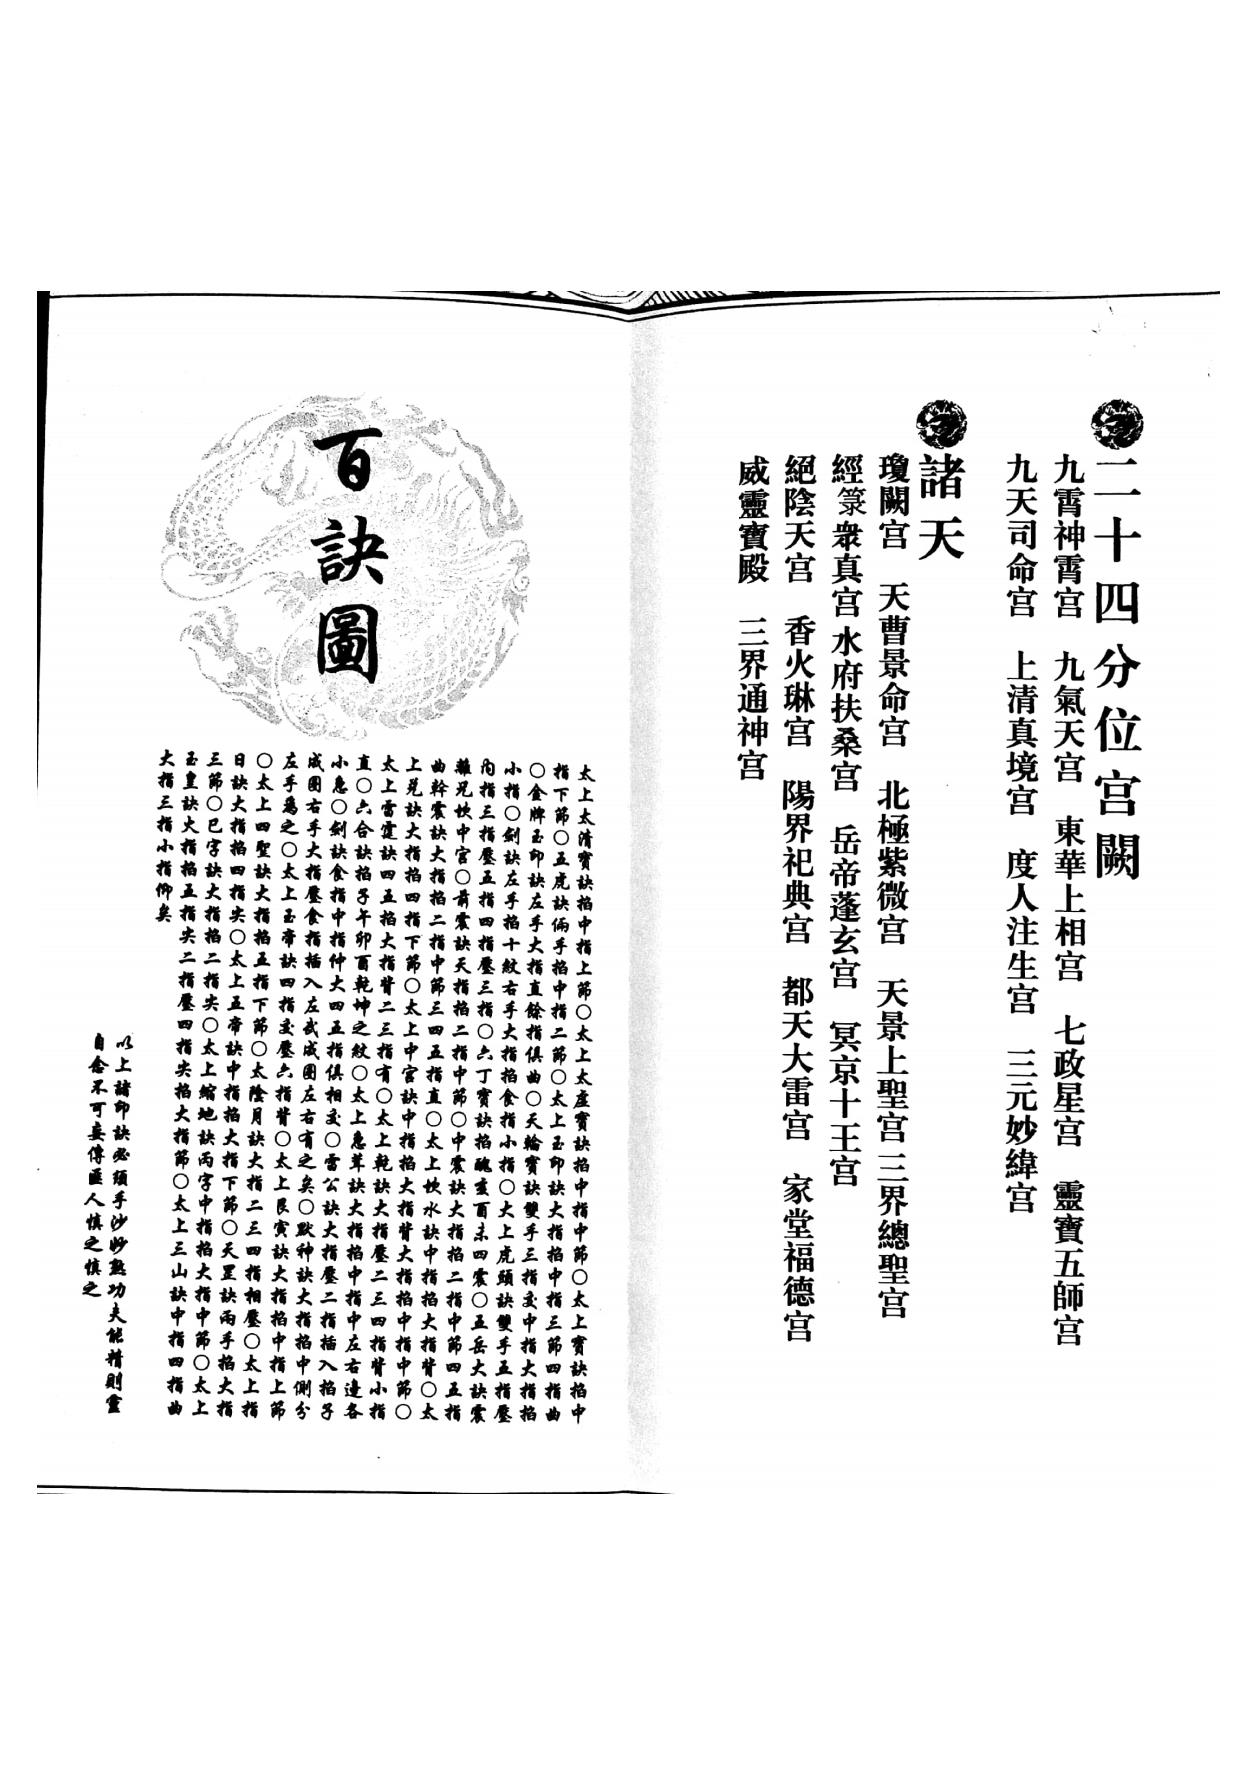 二十四分位宫闕
九霄神霄宫　九氣天宫　東華上相宫　七政星宫　靈寶五師宫
九天司命宫　上清真境宫　度人注生宫　三元妙緯宫
諸天
瓊闕宫　天曹景命宫　北極紫微宫　天景上聖宫　三界總聖宫
經箓衆真宫　水府扶桑宫　岳帝蓬玄宫　冥京十王宫
絕陰天宫　香火琳宫　陽界祀典宫　都天大雷宫　家堂福德宫
威靈寶殿　三界通神宫
百訣圖
太上太清寶訣掐中指上節〇太上太虛寶訣掐中指中節〇太上寶訣掐中
指下節〇五虎訣倆手掐中指二節〇太上玉印訣大指掐中指三節四指曲
〇金牌玉印訣左手大指直餘指俱曲〇天輪寶訣雙手三指交中指大指掐
小指〇劍訣左手掐十紋右手大指掐食指小指〇太上虎頭訣雙手五指壓
内指三指壓五指四指壓三指〇六丁寶訣掐醜亥酉未四震〇五岳大訣震
離兄坎中宫〇前震訣天指掐二指中節〇中震訣大指掐二指中節四五指
曲幹震訣大指掐二指中節三四五指直〇太上坎水訣中指掐大指背〇太
上兑訣大指掐四指下節〇太上中宫訣中指掐大指背大指掐中指中節〇
太上雷霆訣四五掐大指背二三指有〇太上乾訣大指壓二三四指背小指
直〇六合訣掐子午卯酉乾坤之紋〇太上急茸訣大指掐中指中左右邊各
小急〇劍訣食指中指伸大四五指俱相交〇雷公訣大指壓二指插入掐子
成團右手大指壓食指插入左武成團左右有之矣〇默神訣大指掐中側分
左手爲之〇太上玉帝訣四指交壓六指背〇太上艮寅訣大指掐中指上節
〇太上四聖訣大指掐五指下節〇太陰月訣大指二三四指相壓〇太上指
日訣大指掐四指尖〇太上五帝訣中指掐大指下節〇天罡訣兩手掐大指
三節〇巳字訣大指掐二指尖〇太上縮地訣丙字中指掐大指中節〇太上
玉皇訣火指掐五指尖二指壓四指尖掐大指節〇太上三山訣中指四指曲
大指三指小指仰矣
以上諸印訣必須手沙妙熟功夫能精則靈
自念不可妄傳匪人慎之慎之